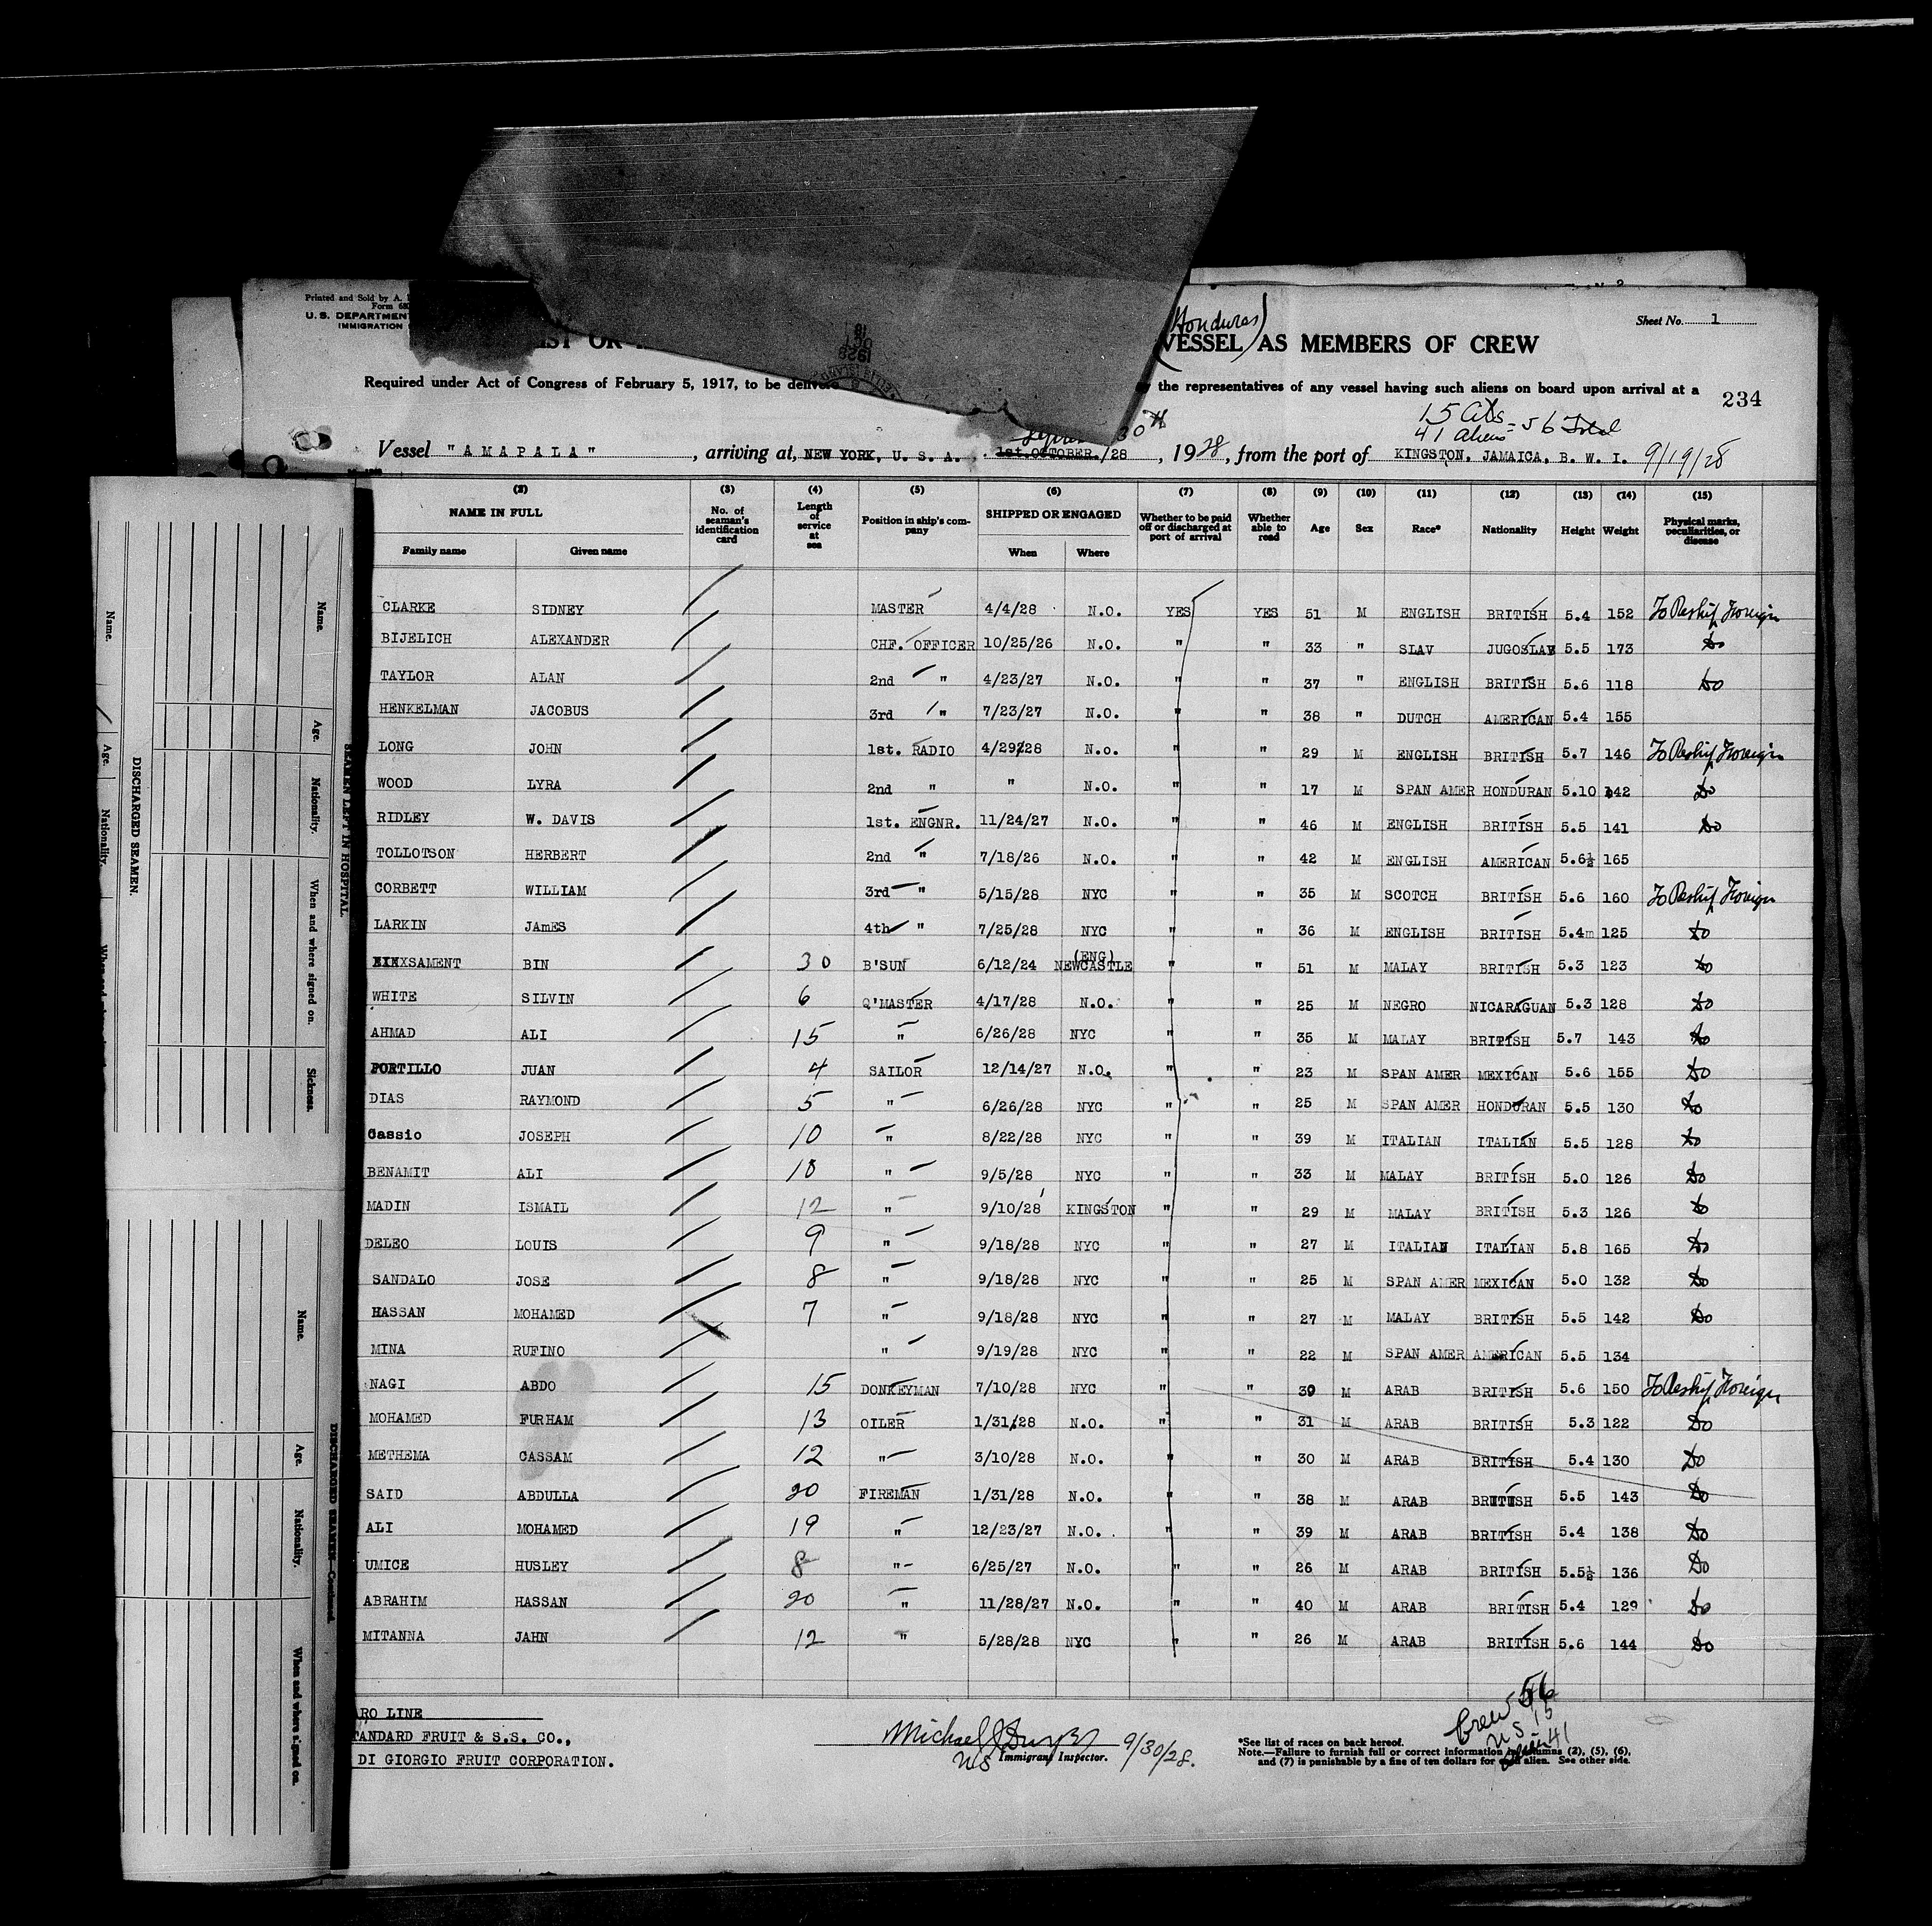 Printed and Sold by A.
Form 680
U. S. DEPARTMENT
IMMIGRATION
(Honduras)
Sheet No. 1
LIST OR
VESSEL AS MEMBERS OF CREW
Required under Act of Congress of February 5, 1917, to be delivered
the representatives of any vessel having such aliens on board upon arrival at a
234
15 Cits = 56 Total
41 aliens
30th
Vessel "AMAPALA", arriving at, NEW YORK, U. S. A. 1st.OCTOBER./28, 1928, from the port of KINGSTON, JAMAICA, B. W. I. 9/19/28
(2) (3) (4) (5) (6) (7) (8) (9) (10) (11) (12) (13) (14) (15)
NAME IN FULL
Family name Given name
No. of seaman's identification card
Length of service at sea
Position in ship's company
SHIPPED OR ENGAGED
When Where
Whether to be paid off or discharged at port of arrival
Whether able to read
Age Sex Race* Nationality Height Weight
Physical marks, peculiarities, or disease
CLARKE SIDNEY MASTER 4/4/28 N.O. YES YES 51 M ENGLISH BRITISH 5.4 152 To Reship Foreign
BIJELICH ALEXANDER CHF. OFFICER 10/25/26 N.O. " " 33 " SLAV JUGOSLAV 5.5 173 Do
TAYLOR ALAN 2nd " 4/23/27 N.O. " " 37 " ENGLISH BRITISH 5.6 118 Do
HENKELMAN JACOBUS 3rd " 7/23/27 N.O. " " 38 " DUTCH AMERICAN 5.4 155
LONG JOHN 1st. RADIO 4/29/28 N.O. " " 29 M ENGLISH BRITISH 5.7 146 To Reship Foreign
WOOD LYRA 2nd " " N.O. " " 17 M SPAN AMER HONDURAN 5.10 142 Do
RIDLEY W. DAVIS 1st. ENGNR. 11/24/27 N.O. " " 46 M ENGLISH BRITISH 5.5 141 Do
TOLLOTSON HERBERT 2nd " 7/18/26 N.O. " " 42 M ENGLISH AMERICAN 5.6½ 165
CORBETT WILLIAM 3rd " 5/15/28 NYC " " 35 M SCOTCH BRITISH 5.6 160 To Reship Foreign
LARKIN JAmES 4th " 7/25/28 NYC " " 36 M ENGLISH BRITISH 5.4m 125 Do
SAMENT BIN 30 B'SUN 6/12/24 (ENG) NEWCASTLE " " 51 M MALAY BRITISH 5.3 123 Do
WHITE SILVIN 6 Q'MASTER 4/17/28 N.O. " " 25 M NEGRO NICARAGUAN 5.3 128 Do
AHMAD ALI 15 " 6/26/28 NYC " " 35 M MALAY BRITISH 5.7 143 Do
PORTILLO JUAN 4 SAILOR 12/14/27 N.O. " " 23 M SPAN AMER MEXICAN 5.6 155 Do
DIAS RAYMOND 5 " 6/26/28 NYC " " 25 M SPAN AMER HONDURAN 5.5 130 Do
Cassio JOSEPH 10 " 8/22/28 NYC " " 39 M ITALIAN ITALIAN 5.5 128 Do
BENAMIT ALI 10 " 9/5/28 NYC " " 33 M MALAY BRITISH 5.0 126 Do
MADIN ISMAIL 12 " 9/10/28 KINGSTON " " 29 M MALAY BRITISH 5.3 126 Do
DELEO LOUIS 9 " 9/18/28 NYC " " 27 M ITALIAN ITALIAN 5.8 165 Do
SANDALO JOSE 8 " 9/18/28 NYC " " 25 M SPAN AMER MEXICAN 5.0 132 Do
HASSAN MOHAMED 7 " 9/18/28 NYC " " 27 M MALAY BRITISH 5.5 142 Do
MINA RUFINO " 9/19/28 NYC " " 22 M SPAN AMER AMERICAN 5.5 134
NAGI ABDO 15 DONKEYMAN 7/10/28 NYC " " 39 M ARAB BRITISH 5.6 150 To Reship Foreign
MOHAMED FURHAM 13 OILER 1/31/28 N.O. " " 31 M ARAB BRITISH 5.3 122 Do
METHEMA CASSAM 12 " 3/10/28 N.O. " " 30 M ARAB BRITISH 5.4 130 Do
SAID ABDULLA 20 FIREMAN 1/31/28 N.O. " " 38 M ARAB BRITISH 5.5 143 Do
ALI MOHAMED 19 " 12/23/27 N.O. " " 39 M ARAB BRITISH 5.4 138 Do
UMICE HUSLEY 8 " 6/25/27 N.O. " " 26 M ARAB BRITISH 5.5½ 136 Do
ABRAHIM HASSAN 20 " 11/28/27 N.O. " " 40 M ARAB BRITISH 5.4 129 Do
MITANNA JAHN 12 " 5/28/28 NYC " " 26 M ARAB BRITISH 5.6 144 Do
ARO LINE
TANDARD FRUIT & S.S. CO.,
DI GIORGIO FRUIT CORPORATION.
Michael
US Immigrant Inspector. 9/30/28.
Crew 56
US 15
41
*See list of races on back hereof.
Note.—Failure to furnish full or correct information in columns (2), (5), (6),
and (7) is punishable by a fine of ten dollars for each alien. See other side.
SEAMEN LEFT IN HOSPITAL.
Name. Age. Nationality. When and where signed on. Sickness.
DISCHARGED SEAMEN.
Name. Age. Nationality. When
DISCHARGED SEAMEN—Continued.
Name. Age. Nationality. When and where signed on.